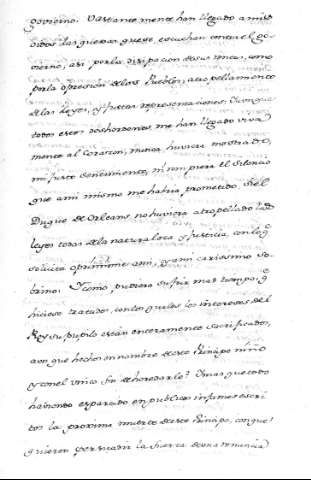 govierno. Vastantemente han llegado a mis
oidos las quexas que se escuchan contra el Go-
vierno, asi por la disipacion de sus rentas, como
por la opresion de los Pueblos, atropellamiento
de las leyes, y justas representaciones. Aunque
todos estos deshordenes me han llegado viva
mente al Corazon, nunca huviera mostrado
mi justo sentimiento, ni rompiera el silencio
que ami mismo me habia prometido. Si el
Duque de Orleans, no huviera atropellado las
leyes todas de la naturaleza y justicia, con lo q.
solicita oprimirme ami, y ami carissimo so-
brino. Y como pudiera sufrir mas tiempo, q.
hiciese tratados, con los quales los intereses del
Rey su pupilo estan enteramente sacrificados,
aunque hechos en nombre de este Principe niño
y con el unico fin de heredarle? Y mas que todo
haviendo esparcido en publico infames escri
tos la proxima muerte de este Principe, con que
quieren persuadir la fuerza de una renuncia